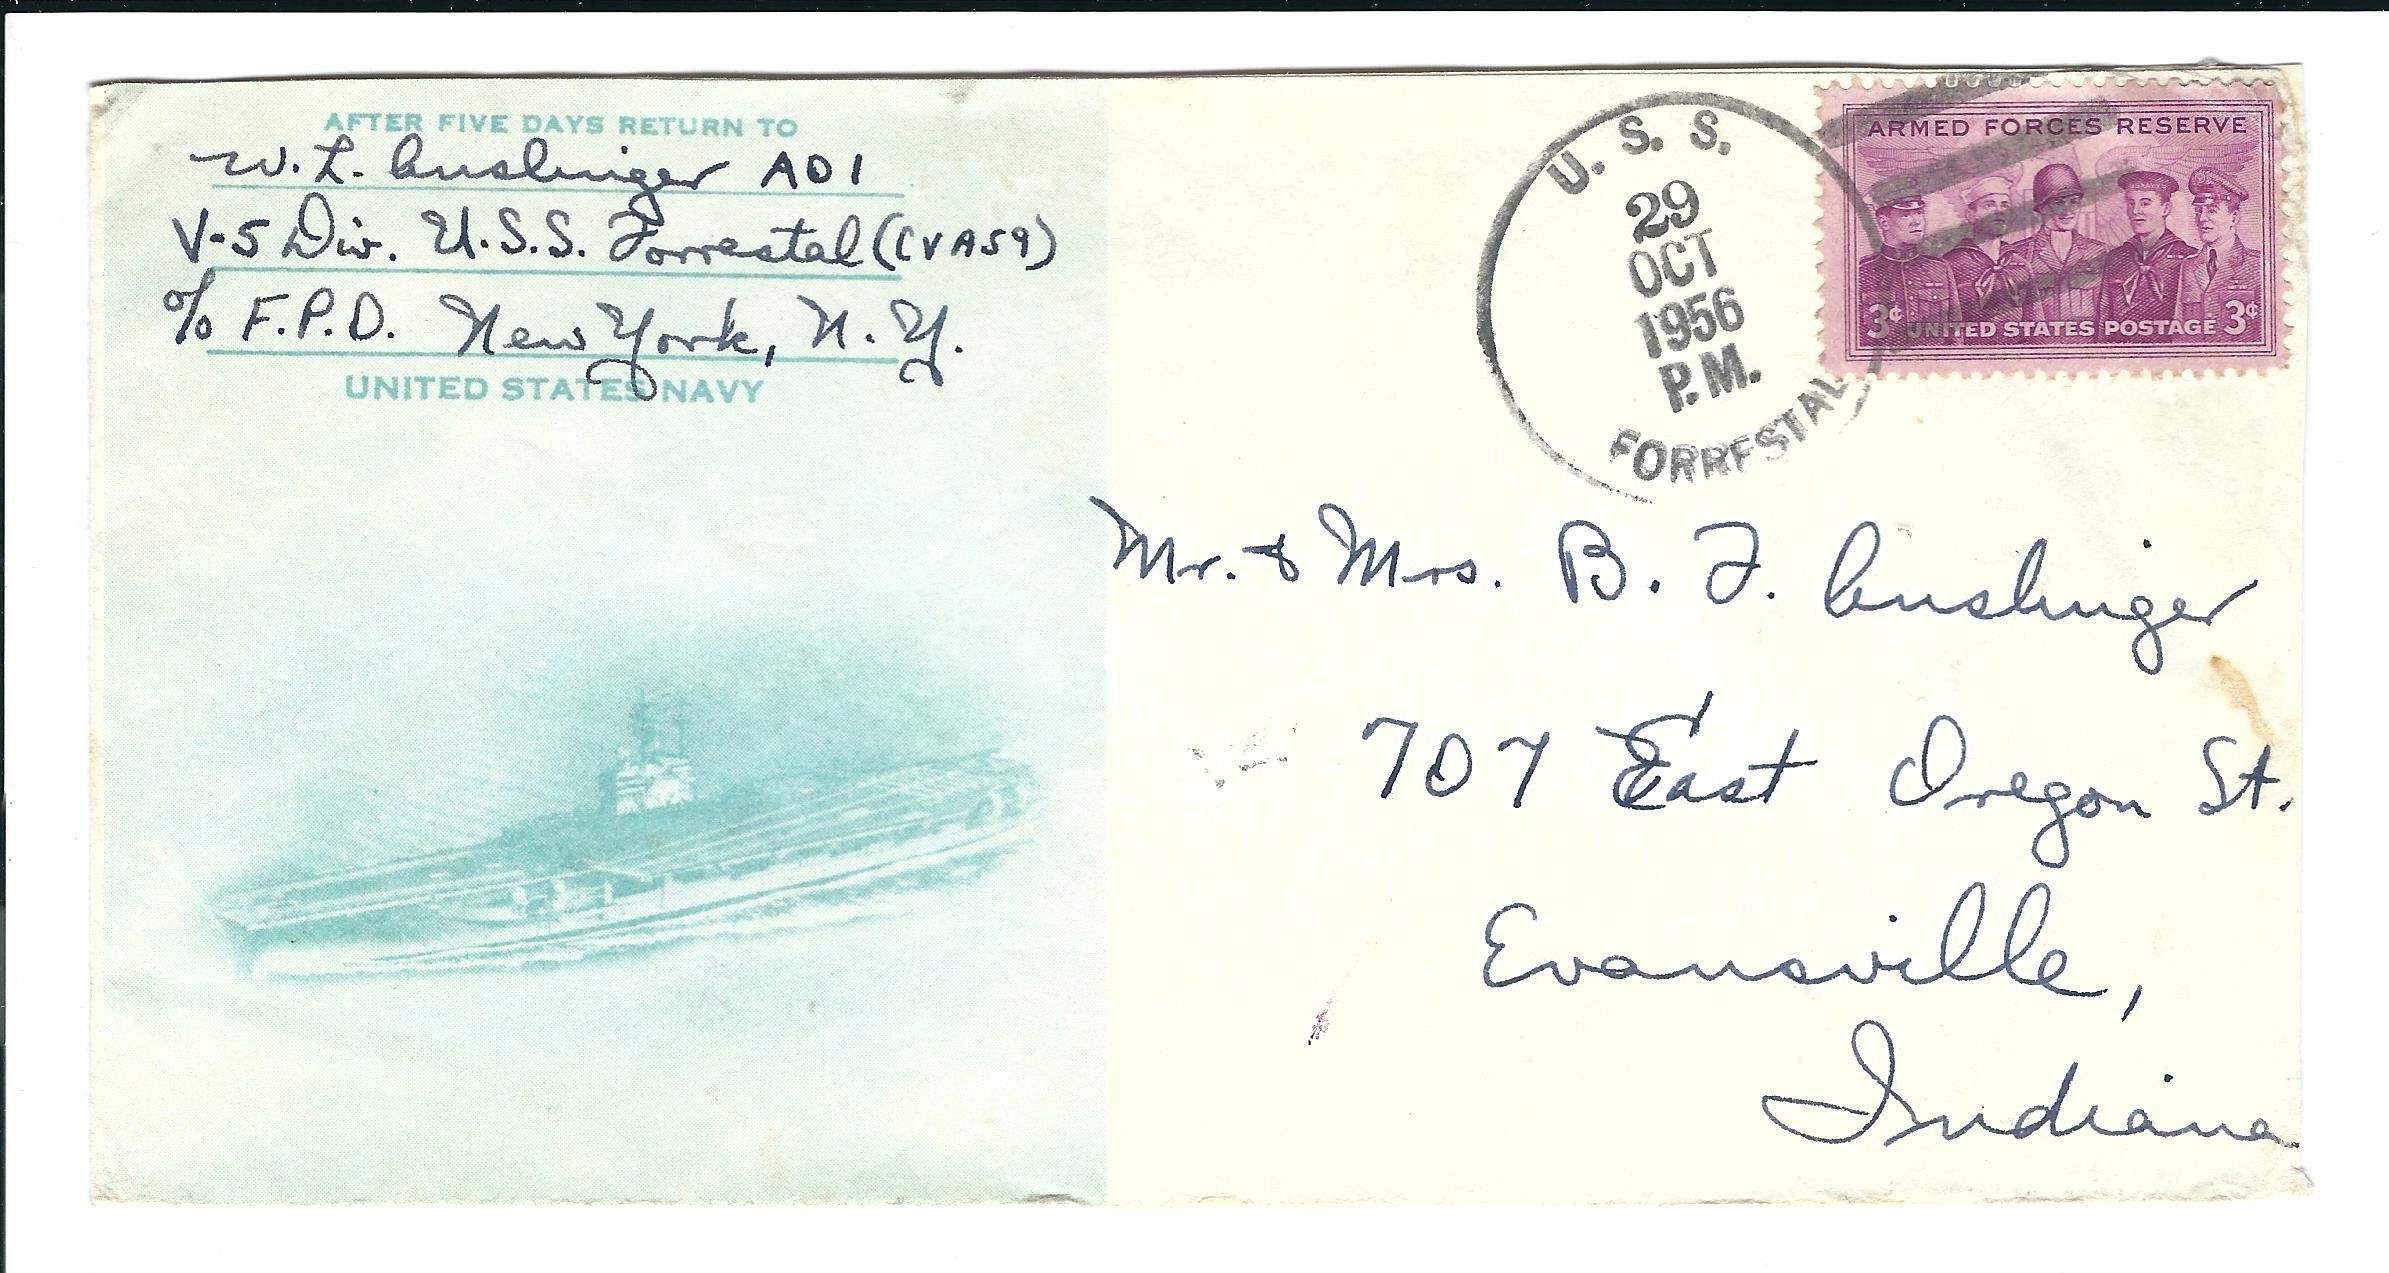 AFTER FIVE DAYS RETURN TO
W. L. AD1
V-5 Div. U.S.S. Forrestal (CVA59)
c/o F.P.O. New York, N.Y.
UNITED STATES NAVY
U. S. S.
29
OCT
1956
P.M.
FORRESTAL
ARMED FORCES RESERVE
3¢ UNITED STATES POSTAGE 3¢
Mr. & Mrs. B. F.
707 East Oregon St.
Evansville,
Indiana